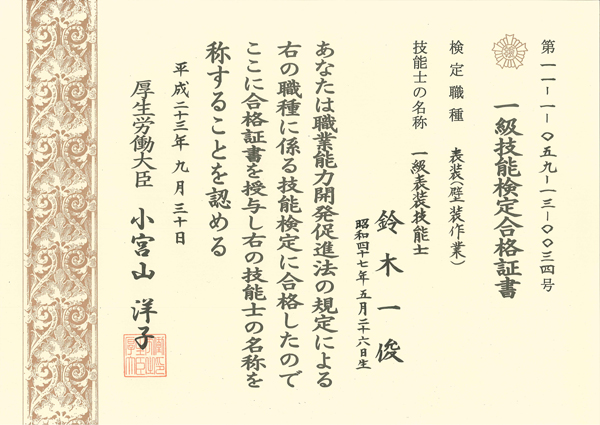 第一一-一-〇五九-一三-〇〇三四号
一級技能検定合格証書
検定職種 表装(壁装作業)
技能士の名称 一級表装技能士
鈴木一俊
昭和四十七年五月二十六日生
あなたは職業能力開発促進法の規定による
右の職種に係る技能検定に合格したので
ここに合格証書を授与し右の技能士の名称を
称することを認める
平成二十三年九月三十日
厚生労働大臣 小宮山洋子